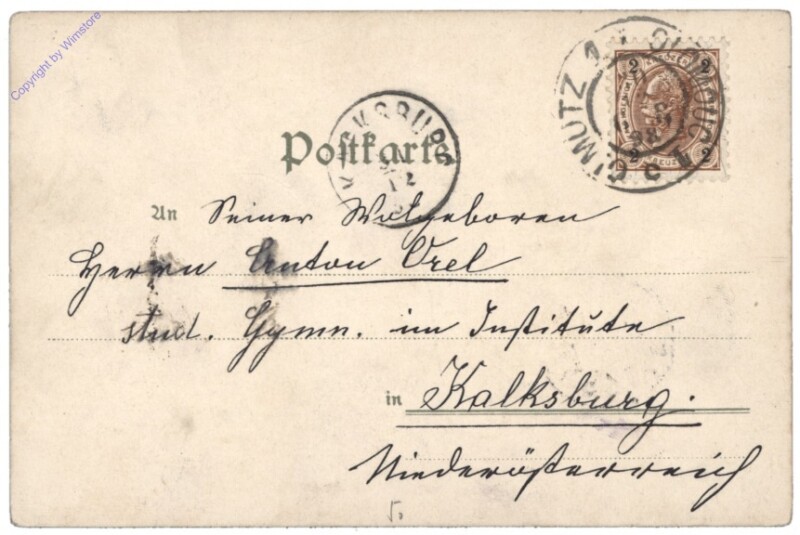 Copyright by Wimstore
OLMÜTZ 1 OLOMOUC
2 2
2 2
KALKSBURG
12
Postkarte
An Seiner Wolgeboren
Herrn Anton Orel
stud. Gymn. im Institute
in Kalksburg.
Niederösterreich